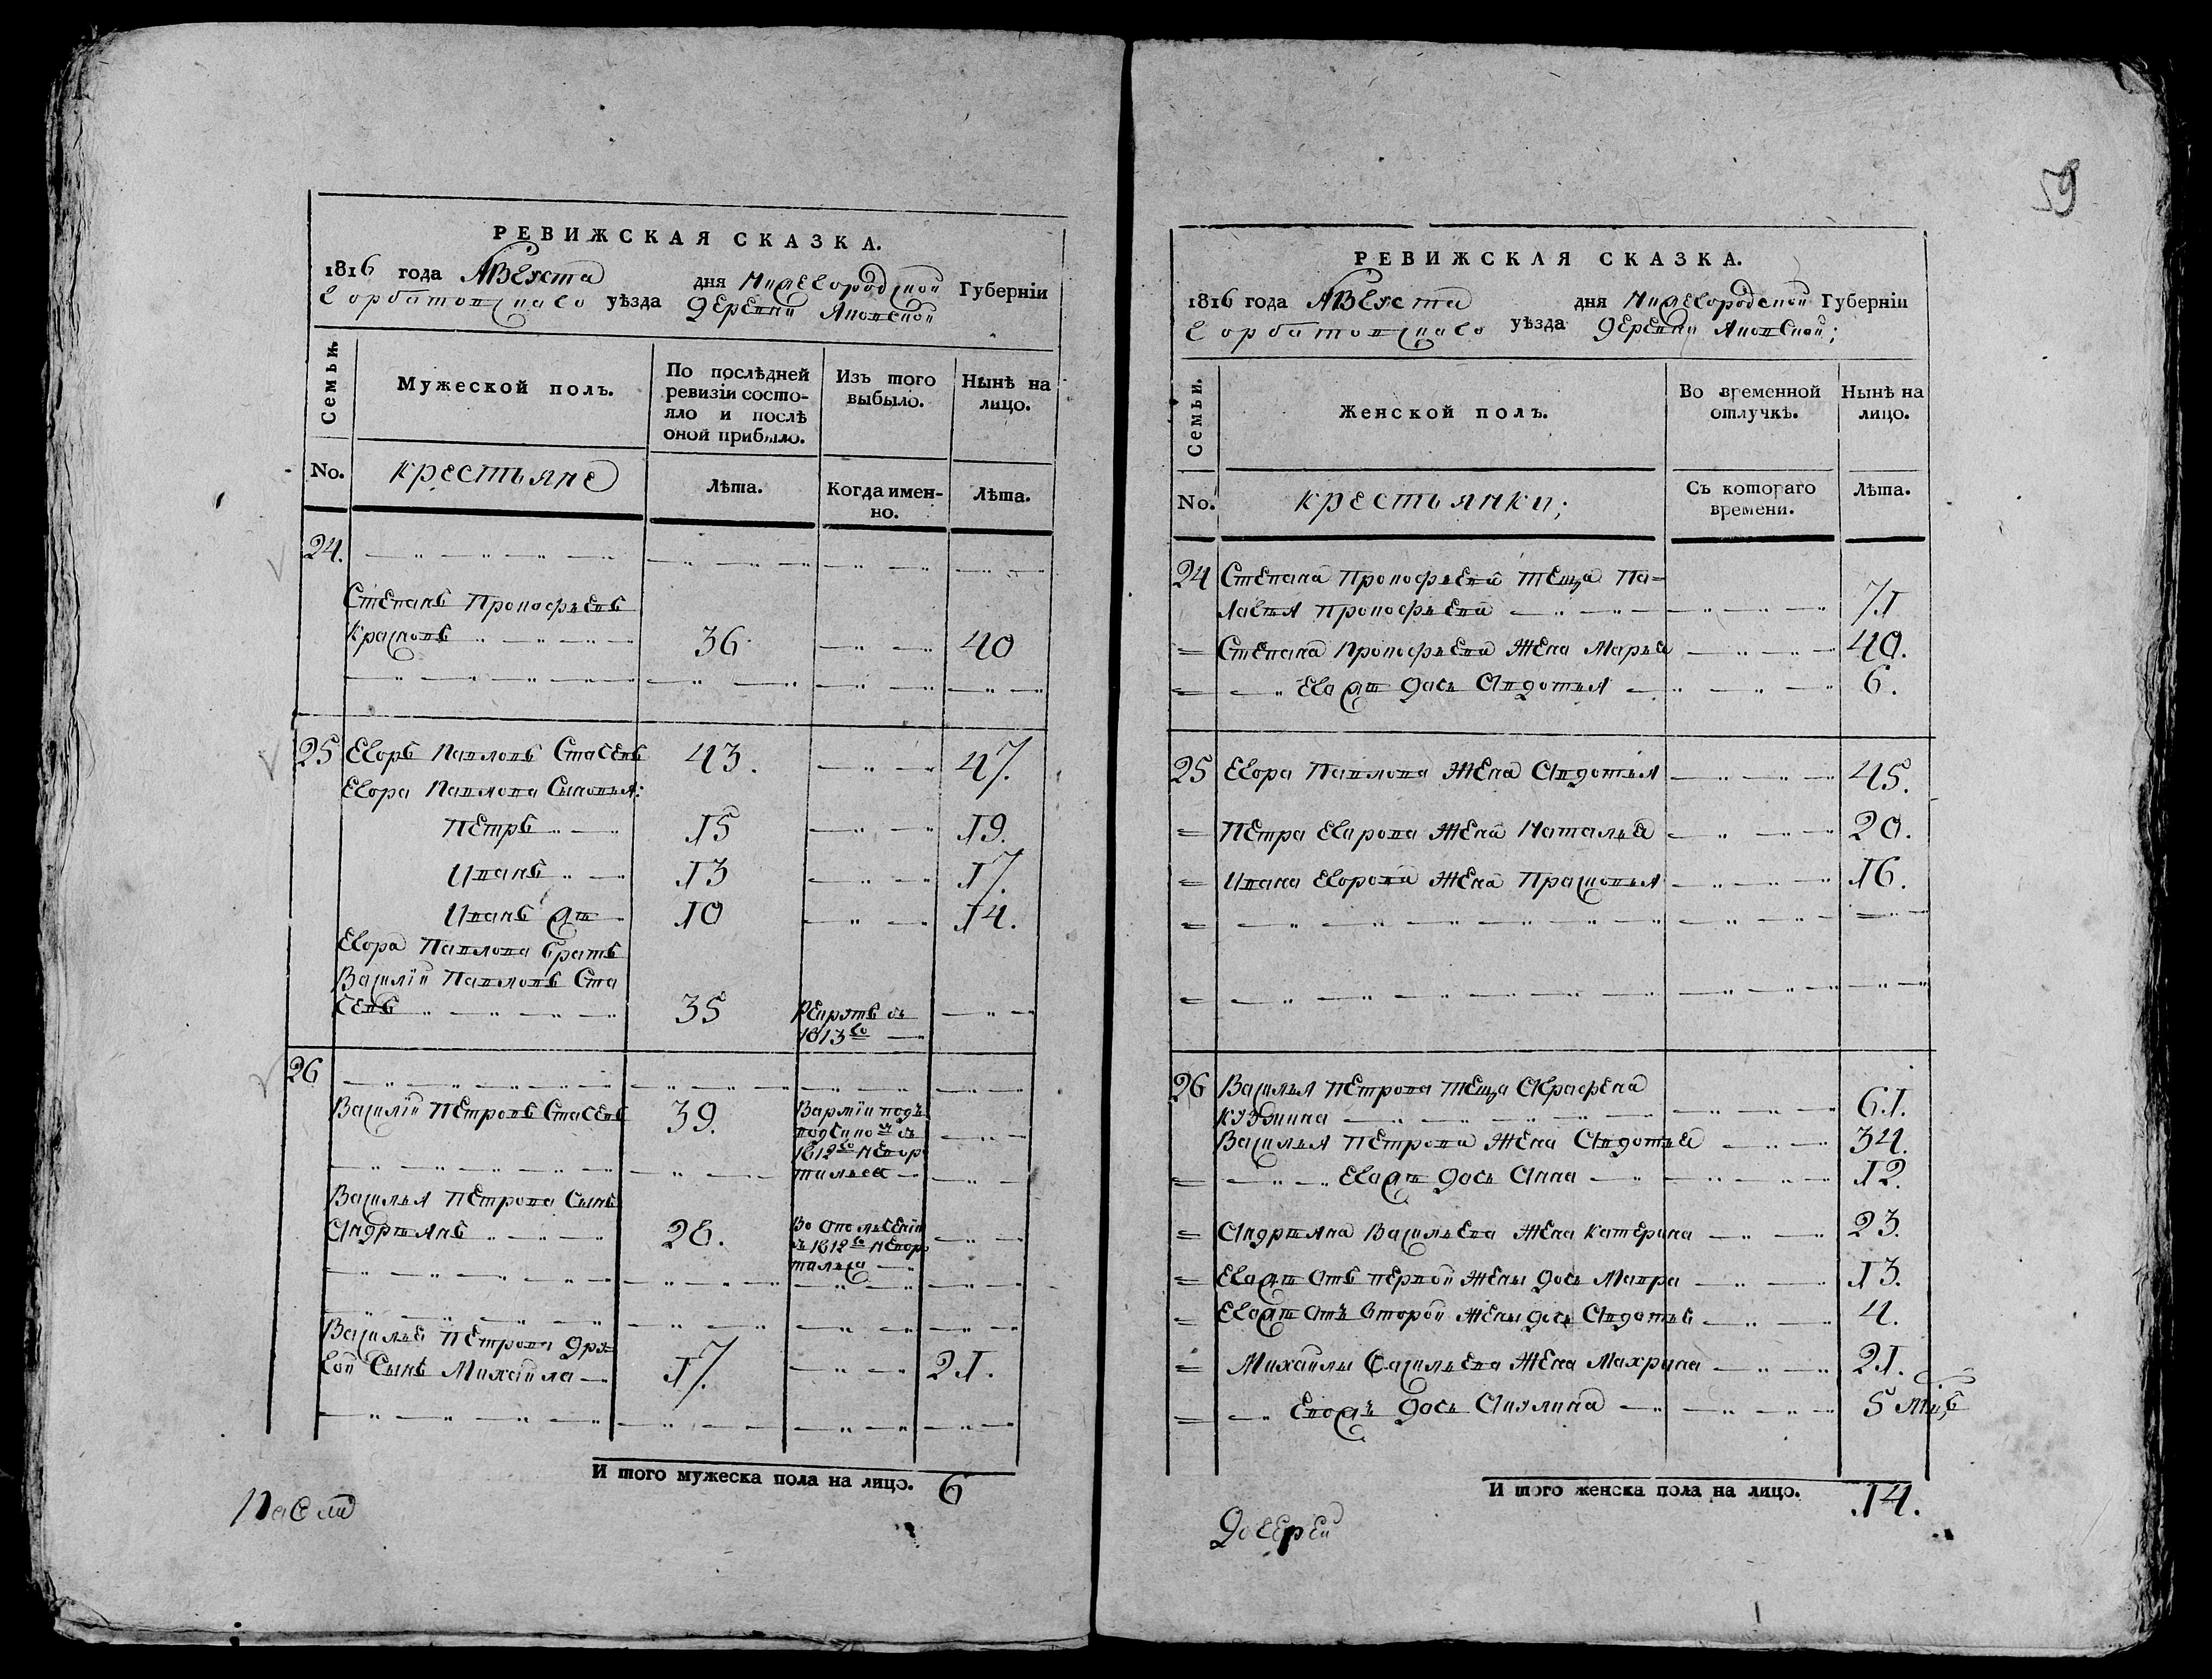 59
РЕВИЖСКАЯ СКАЗКА.
1816 года Августа дня Нижегородской Губернїи
Горбатовскаго уѣзда деревни
Семьи.
Мужеской полъ.
По послѣдней ревизїи состояло и послѣ оной прибыло.
Изъ того выбыло.
Нынѣ на лицо.
No.
крестьяне
Лѣта.
Когда именно.
Лѣта.
24.
Степанъ Прокофьевъ
Красновъ 36 40
25 Егоръ Павловъ Стагевъ 43. 47.
Егора Павлова Сыновья:
Петръ 15 19.
Иванъ 13 17.
Иванъ же 10 14.
Егора Павлова братъ
Василїй Павловъ Ста
гевъ 35 Рекрутъ въ
1813го
26
Василїй Петровъ Стагевъ 39. Вармїи подъ
1812го Невоз
Василья Петрова Сынъ
Андреянъ 28. Во Ополченїи
въ 1812го Невоз
Василья Петрова дру=
гой Сынъ Михайла 17. 21.
И того мужеска пола на лицо. 6
РЕВИЖСКАЯ СКАЗКА.
1816 года Августа дня Нижегородской Губернїи
Горбатовскаго уѣзда деревни
Семьи.
Женской полъ.
Во временной отлучкѣ.
Нынѣ на лицо.
No.
крестьянки;
Съ котораго времени.
Лѣта.
24 Степана Прокофьева теща Пе=
лагея Прокофьева 71
= Степана Прокофьева жена Марья 40.
= Егожъ дочь Авдотья 6.
25 Егора Павлова жена Авдотья 45.
= Петра Егорова жена Наталья 20.
= Ивана Егорова жена Прасковья 16.
=
=
26 Василья Петрова теща Аграфена
Кузмина 61.
Василья Петрова жена Авдотья 34.
= Егожъ дочь Анна 12.
= Андреяна Васильева жена Катерина 23.
= Егожъ отъ первой жены дочь Мавра 13.
= Егожъ отъ второй жены дочь Авдотья 4.
= Михайлы Васильева жена Махрина 21.
= Евожъ дочь Акулина 5 мцъ
И того женска пола на лицо. 14.